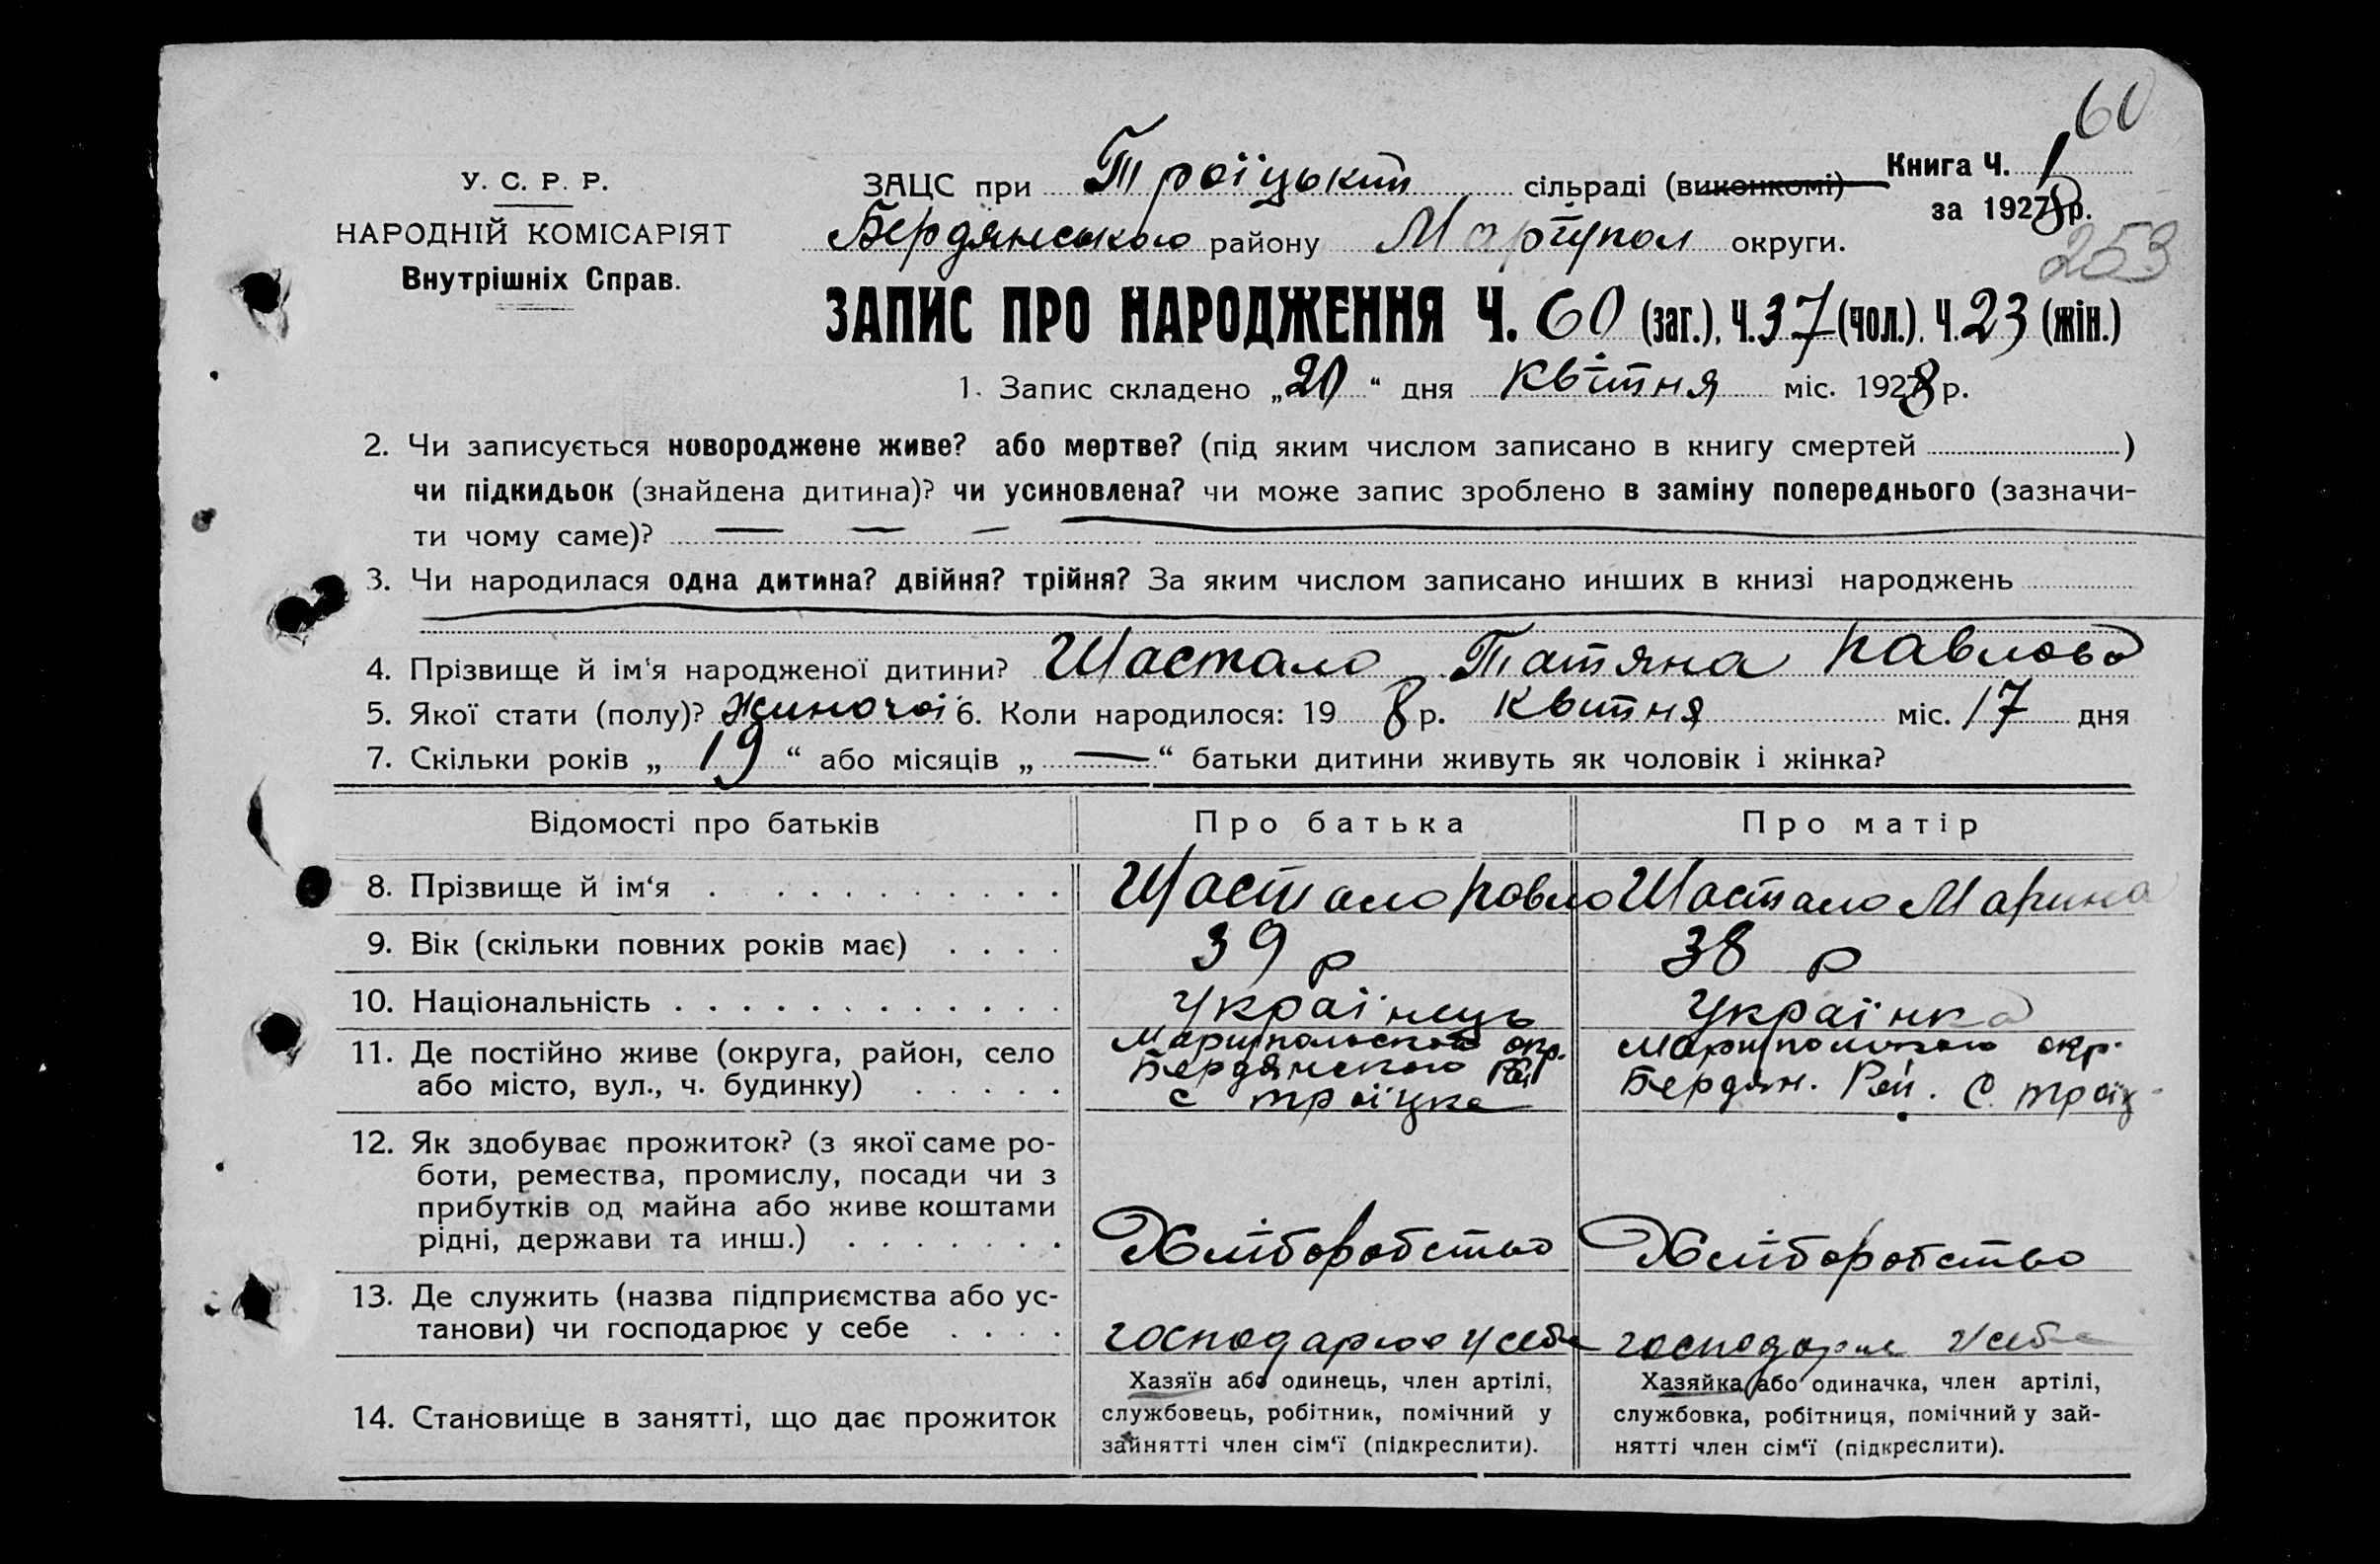 60
У. С. Р. Р.
НАРОДНІЙ КОМІСАРІЯТ
Внутрішніх Справ.
ЗАЦС при Троїцький сільраді (виконкомі) Книга Ч. 1
за 1928 р.
Бердянського району Маріупол округи.
253
ЗАПИС ПРО НАРОДЖЕННЯ Ч. 60 (заг.), Ч. 37 (чол.). Ч. 23 (жін.)
1. Запис складено „20“ дня Квітня міс. 1928 р.
2. Чи записується новороджене живе? або мертве? (під яким числом записано в книгу смертей )
чи підкидьок (знайдена дитина)? чи усиновлена? чи може запис зроблено в заміну попереднього (зазначи-
ти чому саме)? — — —
3. Чи народилася одна дитина? двійня? трійня? За яким числом записано инших в книзі народжень
4. Прізвище й ім'я народженої дитини? Шастало Татяна Павлова
5. Якої стати (полу)? Жиночої 6. Коли народилося: 19 8 р. Квитня міс. 17 дня
7. Скільки років „19“ або місяців „—“ батьки дитини живуть як чоловік і жінка?
Відомості про батьків Про батька Про матір
8. Прізвище й ім'я Шастало Павло Шастало Марина
9. Вік (скільки повних років має) 39 р 38 р
10. Національність Українець Українка
11. Де постійно живе (округа, район, село
або місто, вул., ч. будинку)
Мариупольского окр.
Бердянского Рай
с Троїцке
Мариупольского окр.
Бердян. Рай. С. Троїц-
12. Як здобуває прожиток? (з якої саме ро-
боти, ремества, промислу, посади чи з
прибутків од майна або живе коштами
рідні, держави та инш.)
Хліборобство Хліборобство
13. Де служить (назва підприємства або ус-
танови) чи господарює у себе
господарює у себе господарює у себе
14. Становище в занятті, що дає прожиток
Хазяїн або одинець, член артілі,
службовець, робітник, помічний у
зайнятті член сім'ї (підкреслити).
Хазяйка або одиначка, член артілі,
службовка, робітниця, помічний у зай-
нятті член сім'ї (підкреслити).